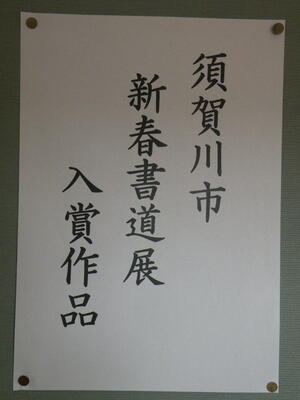 須賀川市
新春書道展
入賞作品